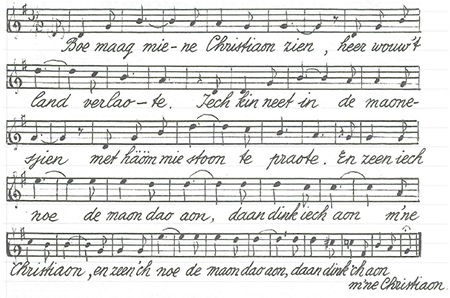 Boe maag mie-ne Christiaon zien, heer wouw't
land verlao-te. Iech kin neet in de maone-
sjien met hääm mie stoon te praote. En zeen iech
noe de maon dao aon, daan dink iech aon m'ne
Christiaon, en zeen'ch noe de maon dao aon, daan dink'ch aon
m'ne Christiaon.